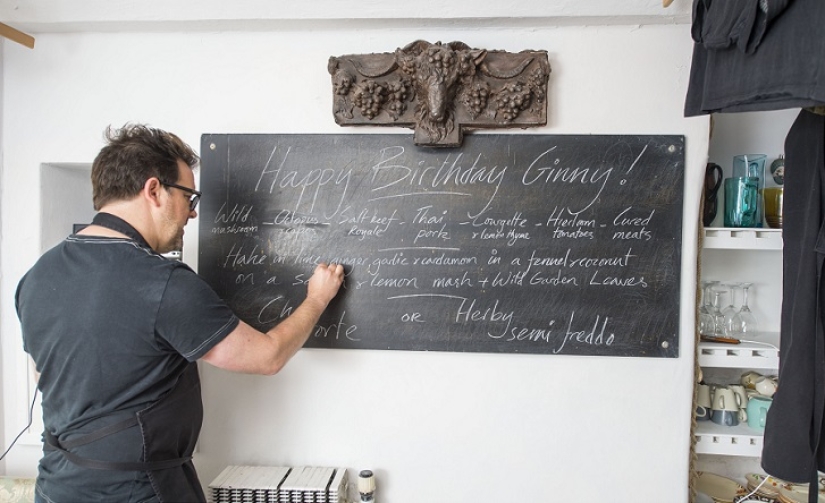 Happy Birthday Ginny!
Wild - Octopus - Salt beef - Thai - Courgette - Heirloom - Cured
mushroom royale porke & lemon thyme tomatoes meats
Hake in lime, ginger, garlic & cardamom in a fennel & coconut
on a & lemon mash + Wild Garden Leaves
OR Herby
torte semi freddo